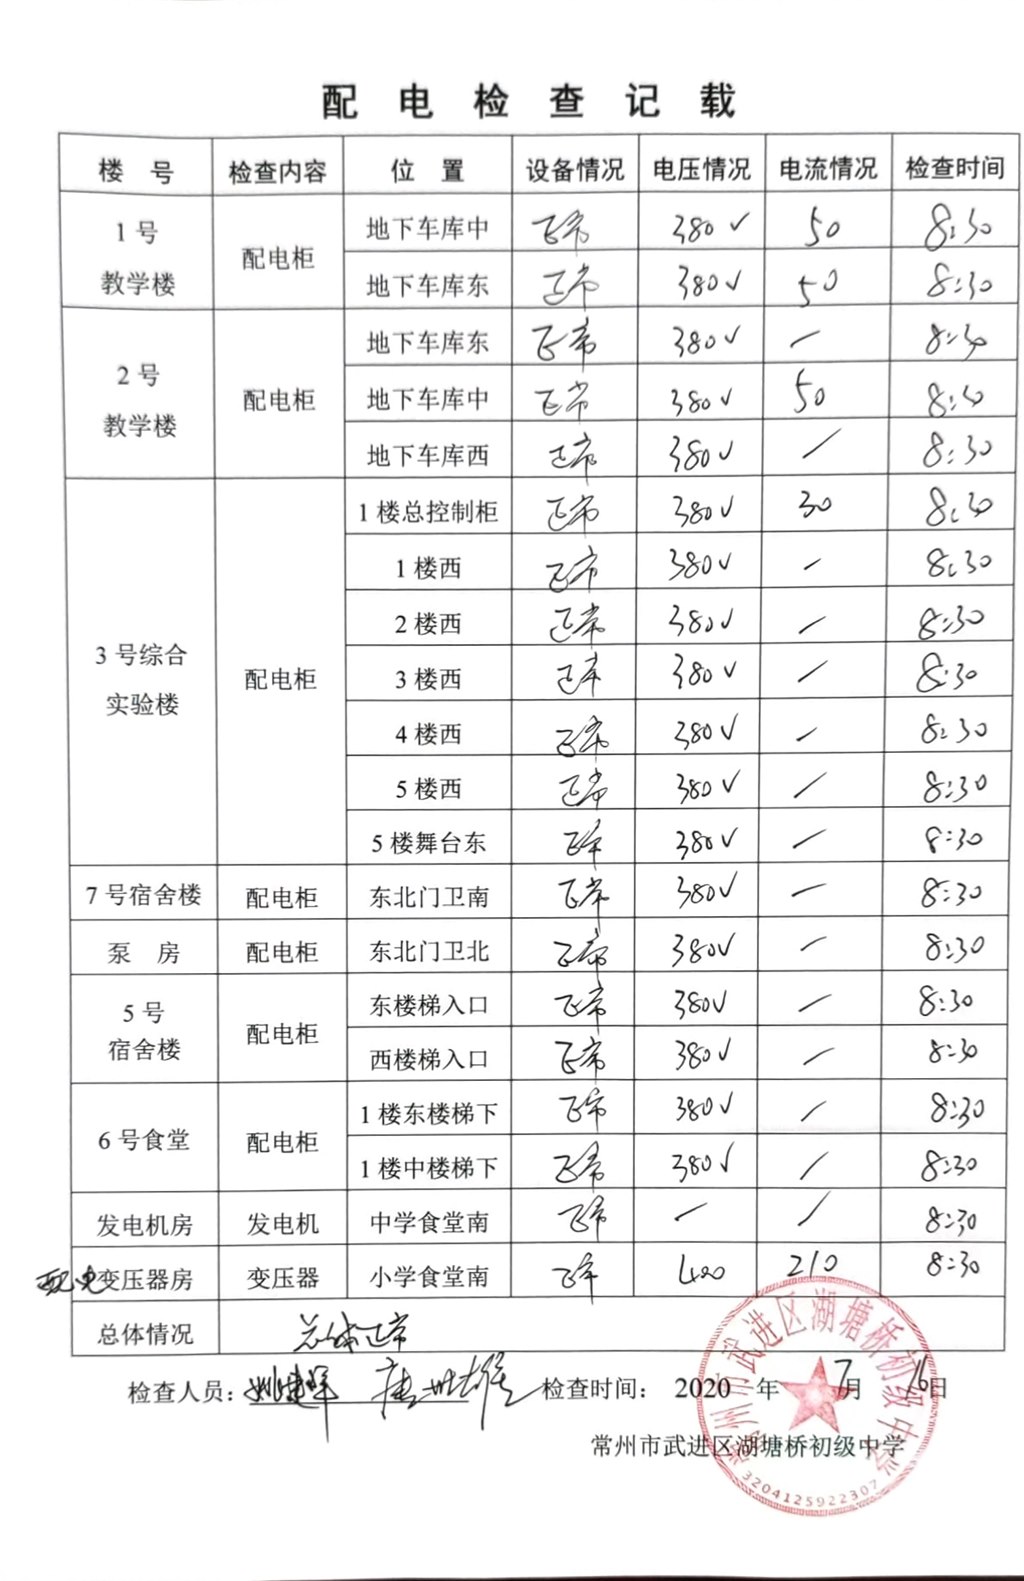 配电检查记载
楼号 检查内容 位置 设备情况 电压情况 电流情况 检查时间
1号教学楼 配电柜 地下车库中 正常 380V 50 8:30
地下车库东 正常 380V 50 8:30
2号教学楼 配电柜 地下车库东 正常 380V — 8:30
地下车库中 正常 380V 50 8:30
地下车库西 正常 380V / 8:30
3号综合实验楼 配电柜 1楼总控制柜 正常 380V 30 8:30
1楼西 正常 380V / 8:30
2楼西 正常 380V / 8:30
3楼西 正常 380V / 8:30
4楼西 正常 380V / 8:30
5楼西 正常 380V / 8:30
5楼舞台东 正常 380V / 8:30
7号宿舍楼 配电柜 东北门卫南 正常 380V — 8:30
泵房 配电柜 东北门卫北 正常 380V / 8:30
5号宿舍楼 配电柜 东楼梯入口 正常 380V / 8:30
西楼梯入口 正常 380V / 8:30
6号食堂 配电柜 1楼东楼梯下 正常 380V / 8:30
1楼中楼梯下 正常 380V / 8:30
发电机房 发电机 中学食堂南 正常 — / 8:30
配电变压器房 变压器 小学食堂南 正常 400 210 8:30
总体情况 总体正常
检查人员： 检查时间： 2020 年 7月 16日
常州市武进区湖塘桥初级中学
常州市武进区湖塘桥初级中学
3204125922307